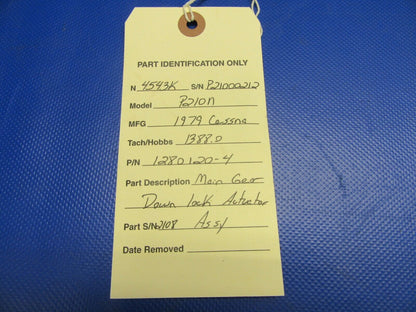 PART IDENTIFICATION ONLY
N 4543K S/N P21000212
Model P210N
MFG 1979 Cessna
Tach/Hobbs 1388.0
P/N 1280120-4
Part Description Main Gear
Down lock Actuator
Part S/N 2108 Assy
Date Removed